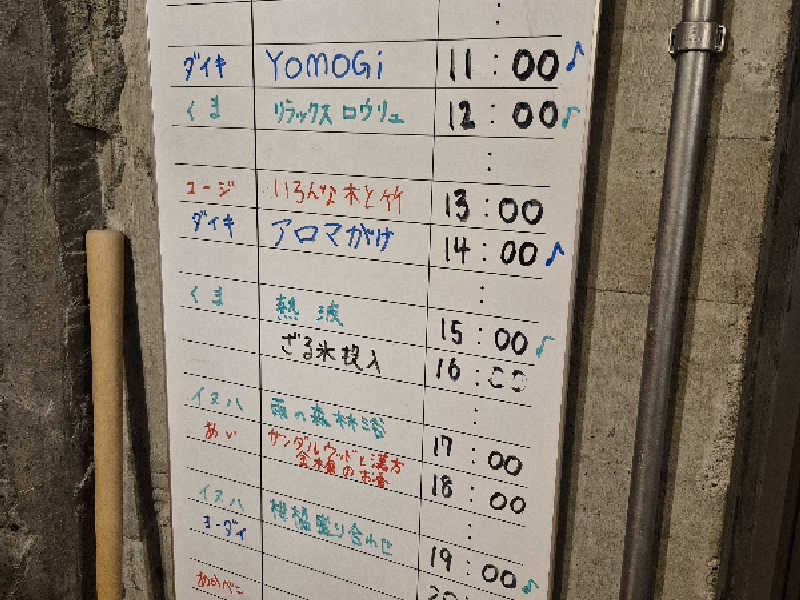 ダイキ YOMOGi 11:00♪
くま リラックスロウリュ 12:00♪
コージ いろんな木と竹 13:00
ダイキ アロマがけ 14:00♪
くま 熱波 15:00♪
ざる氷投入 16:00
イヌハ 雨の森林浴 17:00
あい サンダルウッドと漢方 18:00
イヌハ 柑橘盛り合わせ 19:00♪
ヨーダイ